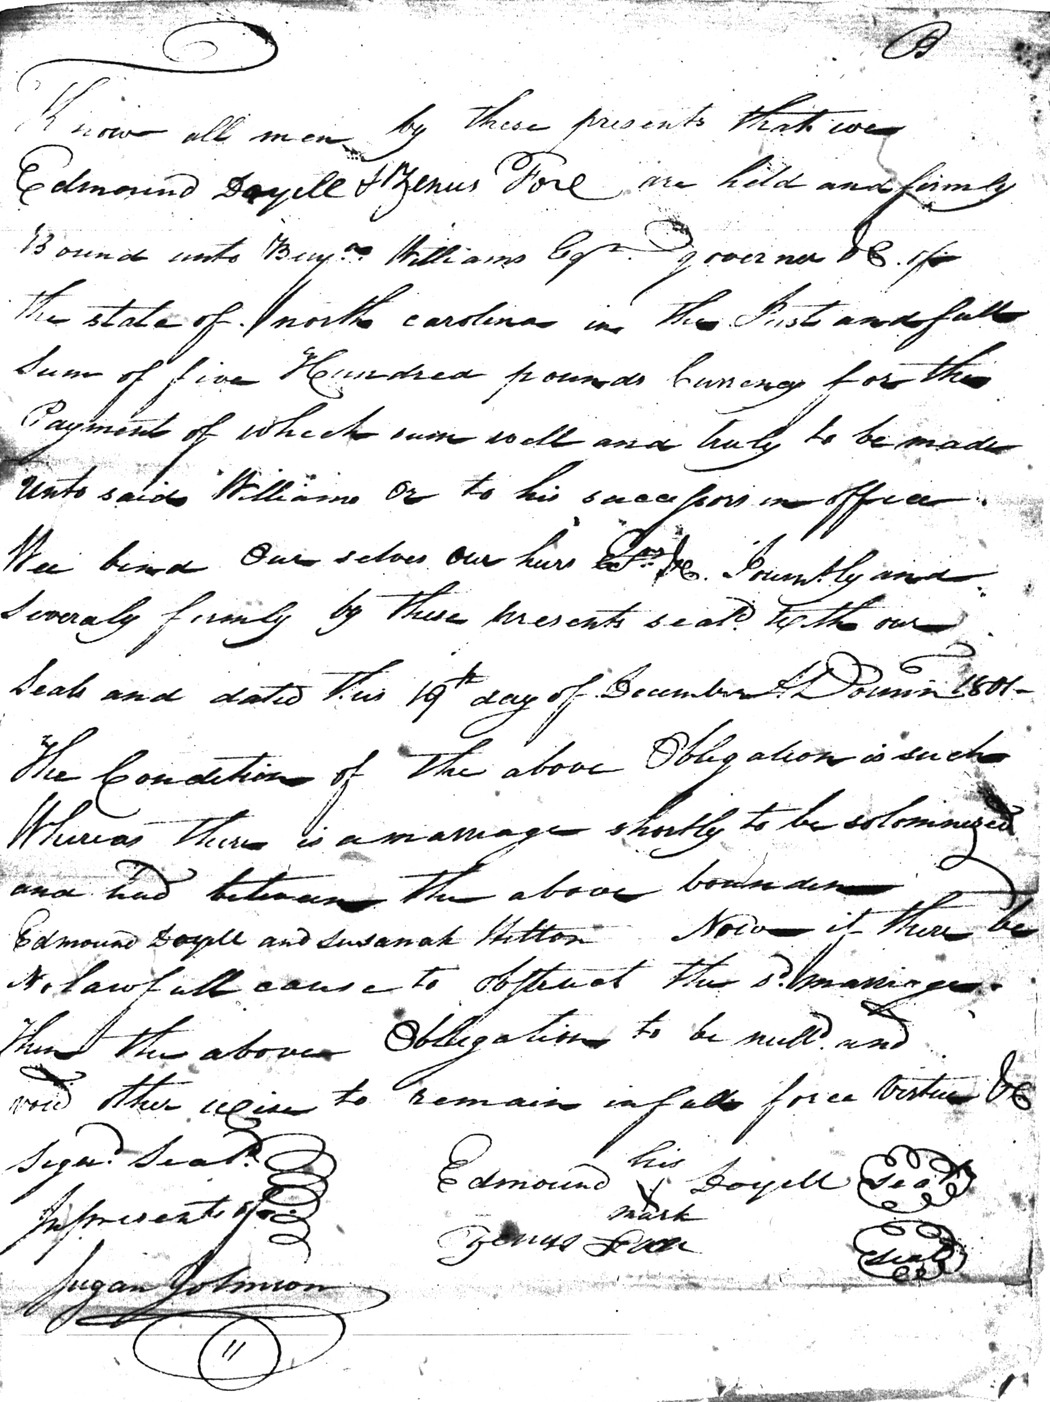 B
Know all men by these presents that we
Edmound Doyell & Zenus Fore are held and firmly
Bound unto Benjn. Williams Esqr. governer &C. of
the state of north carolina in the Just and full
Sum of five Hundred pounds Currency for the
Payment of which sum well and truly to be made
Unto said Williams Or to his successors in office
Wee bind Our selves our hirs &C. Jountly and
Severaly firmly by these presents seald. with our
Seals and dated this 19th day of December AD Domin 1801
The Condition of the above Obligation is such
Whereas there is a marriage shortly to be solomnized
and had between the above bounden
Edmound Doyell and Susanah Hitton Now if there be
No lawfull cause to obstruct the sd. marriage.
Then the above Obligation to be nulld. and
void other wise to remain in full force Virtue &C
Signd. Seald.
In presents of
Edmound his mark Doyell seal
Zenus Fore seal
Johnson
11